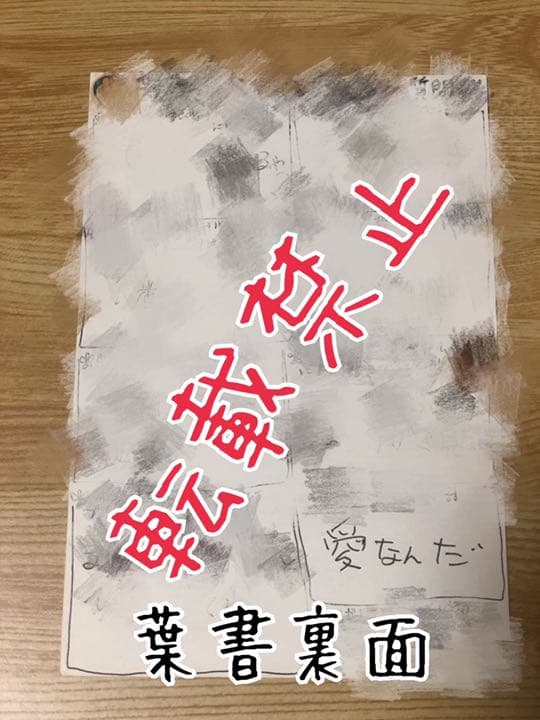 転載禁止
愛なんだ
葉書裏面